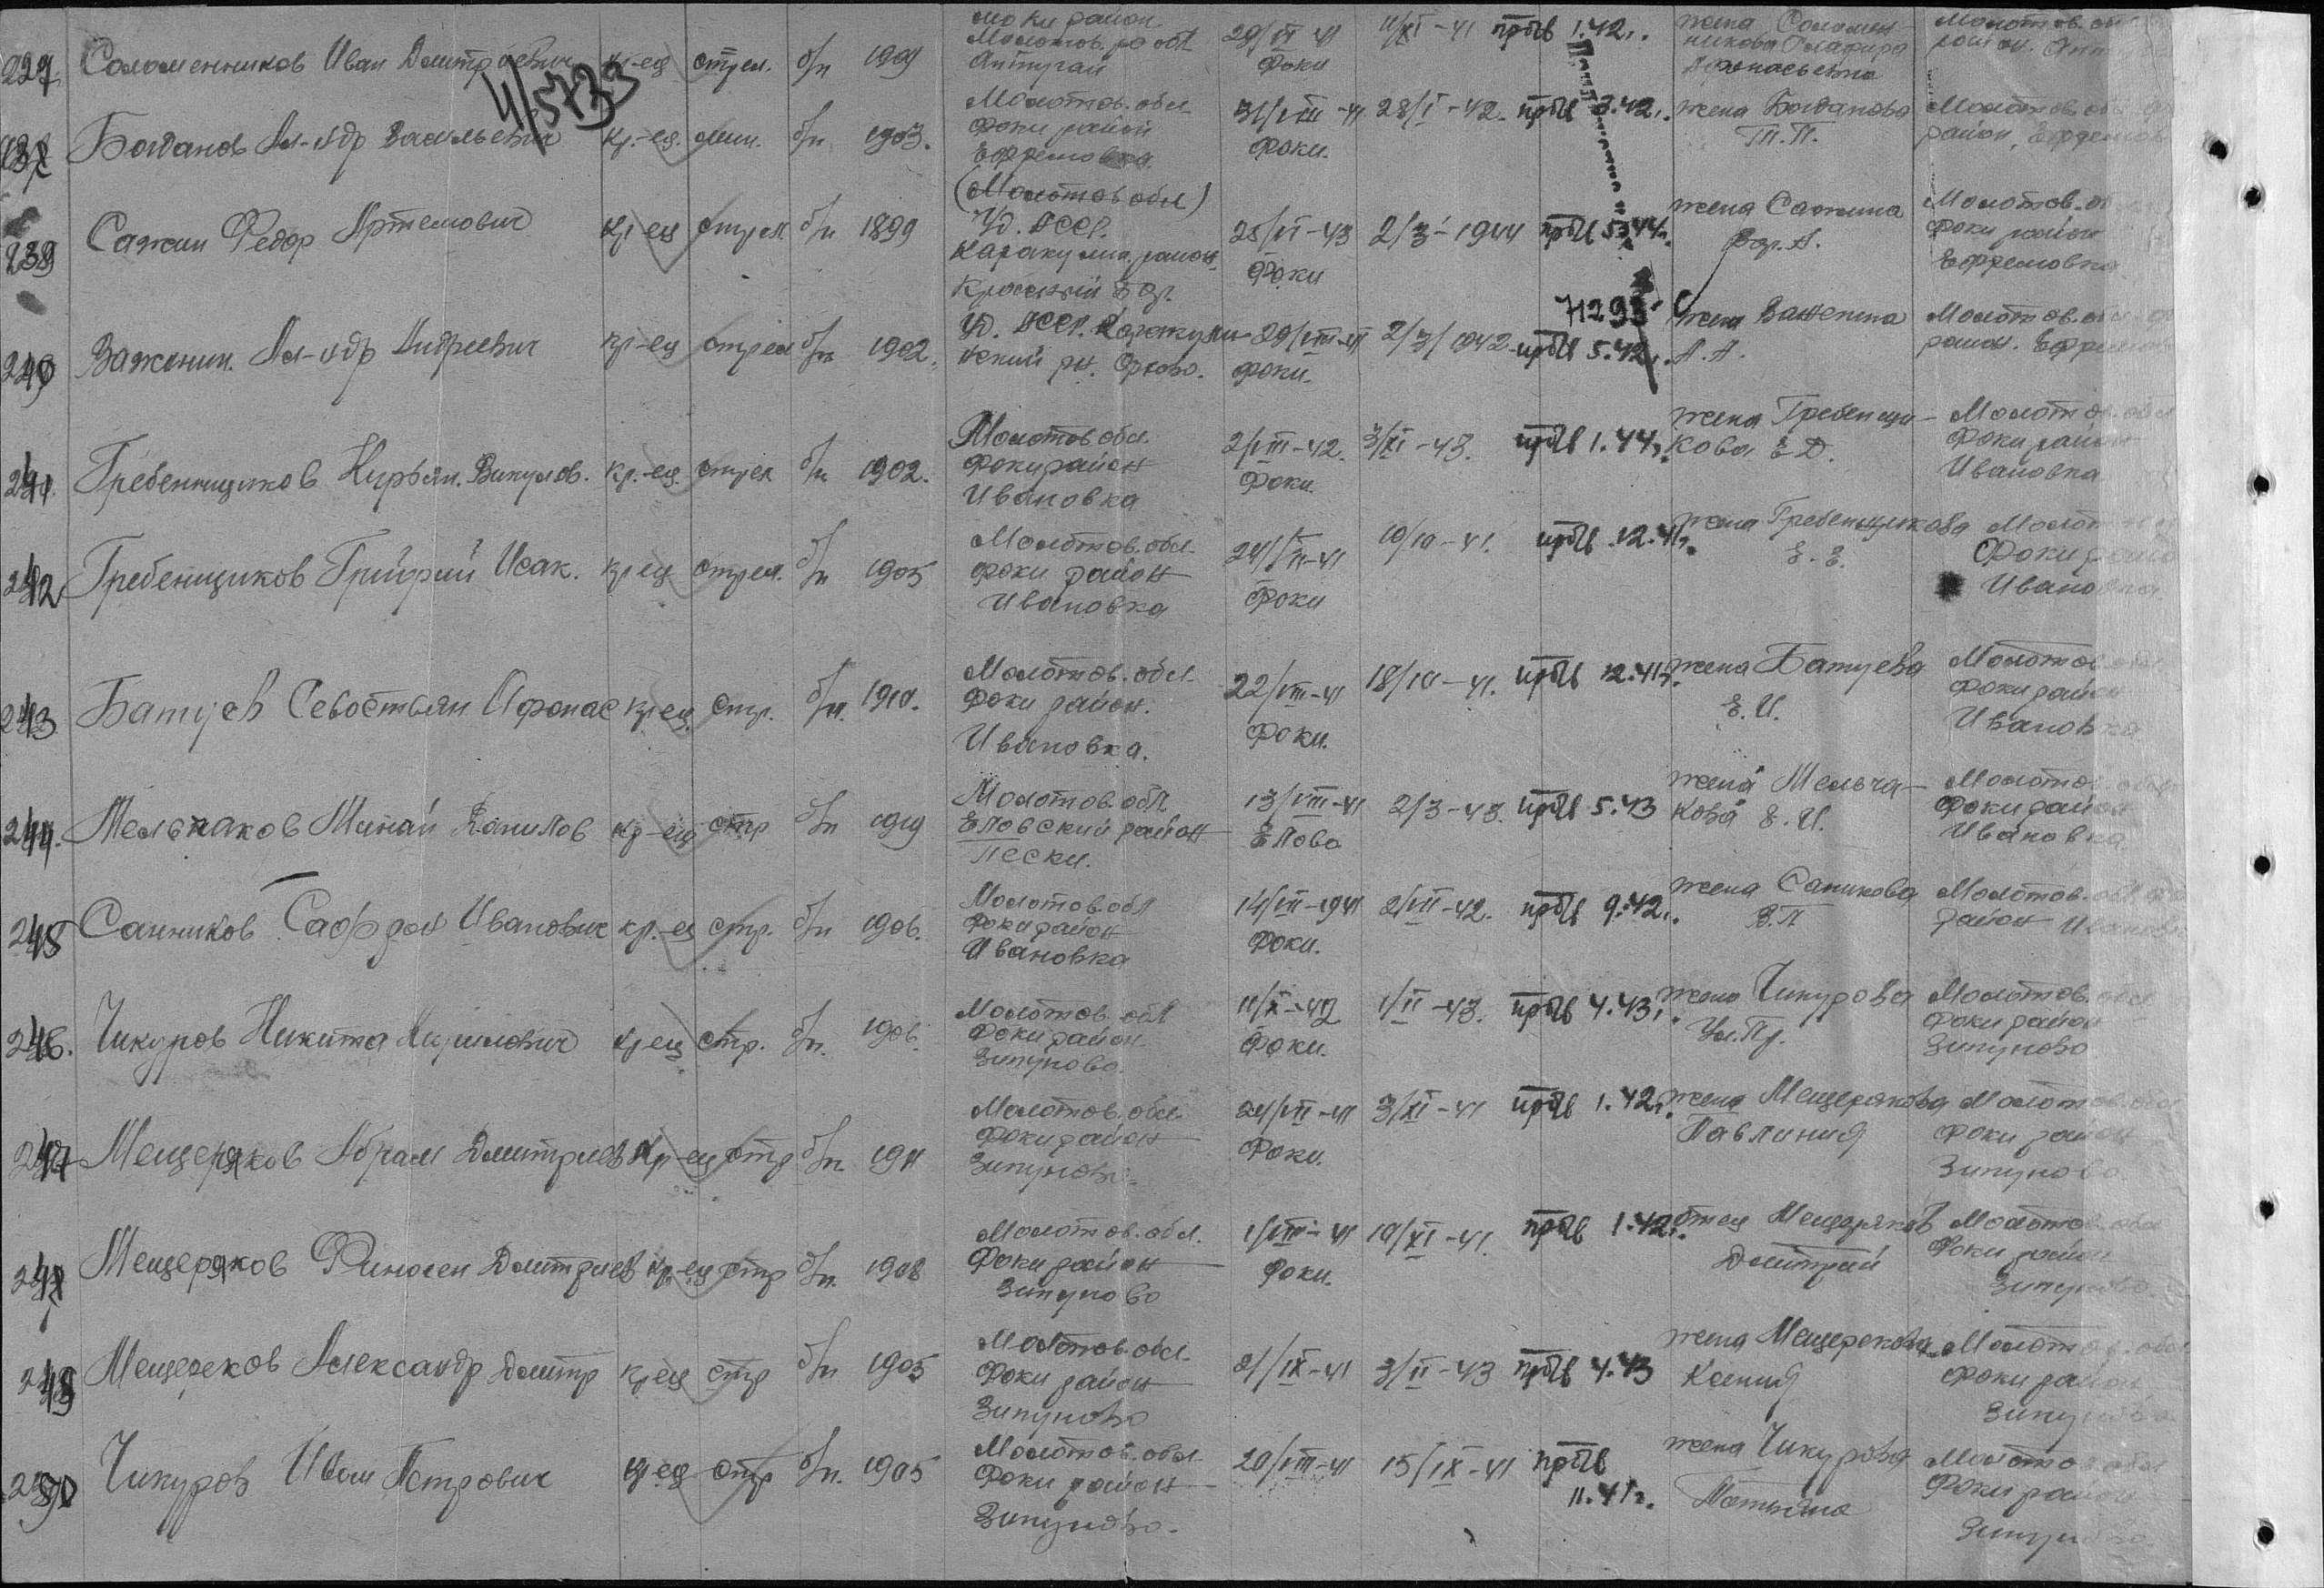 Фоки район
237 Соломенников Иван Дмитриевич кр-ец стрел. б/п 1909 Молотов. обл. 29/VI 41 11/XI-41 пр.б/в 1.42г. жена Соломен- Молотов. обл.
Фоки никова Глафира район
Афонасьевна
4/5733
238 Богданов Ал-ндр Васильевич кр.-ец. мин. б/п 1903. Молотов. обл. 31/VIII-41 28/I-42. пр.б/в 3.42г. жена Богданова Молотов. обл.
Фоки район Фоки. Т.П. район, Ефремов
Ефремовка
(Молотов обл)
239 Сажин Федор Артемович кр-ец стрел б/п 1899 Уд. АССР. 25/VI-43 2/3-1944 пр.б/в 5.44г. жена Сажина Молотов. об
Каракулин. район Фоки Вар. А. Фоки район
Красный Бор. Ефремовка
71293
240 Важенин. Ал-ндр Андреевич кр-ец стрел б/п 1902. Уд. АССР. Каракулин- 29/VIII-41 2/3/1942 пр.б/в 5.42г. жена Важенина Молотов. обл.
ский рн. Орлово. Фоки. А.А. район. Ефремов
241 Гребенщиков Кирьян. Викулов. кр.-ец. стрел б/п 1902. Молотов обл. 2/VIII-42. 3/XI-43. пр.б/в 1.44г. жена Гребенщи- Молотов. обл
Фоки район Фоки. кова Е Д. Фоки район
Ивановка Ивановка
242 Гребенщиков Григорий Исак. кр ец стрел. б/п 1905 Молотов. обл. 24/VII-41 10/10-41. пр.б/в 12.41г. жена Гребенщикова Молот
Фоки район Фоки Е.Е. Фоки район
Ивановка Ивановка
243 Батуев Севостьян Афонас кр ец. стр. б/п. 1910. Молотов. обл. 22/VIII-41 18/10-41. пр.б/в 12.41г. жена Батуева Молотов
Фоки район. Фоки. Е.И. Фоки район
Ивановка. Ивановка
244. Мельчаков Минай Данилов кр-ец стр б/п 1919 Молотов. обл. 13/VIII-41 2/3-43. пр.б/в 5.43 жена Мельча- Молотов обл
Еловский район Елово кова Е.И. Фоки район
Пески. Ивановка
245 Санников Софрон Иванович кр.-ец стр. б/п 1906. Молотов обл 14/VII-1941 2/VII-42. пр.б/в 9.42г. жена Саникова Молотов. обл
Фоки район Фоки. В.П район Иванов
Ивановка
246. Чикуров Никита Кирилович кр ец стр. б/п. 1906. Молотов. обл 11/X-42 1/II-43. пр.б/в 4.43г. жена Чикурова Молотов. обл
Фоки район. Фоки. Ул. Пр. Фоки район
Зипуново. Зипуново
247 Мещеряков Абрам Дмитриев кр-ец стр б/п. 1911 Молотов. обл. 24/VII-41 3/XI-41 пр.б/в 1.42г. жена Мещерякова Молотов. обл
Фоки район Фоки. Павлиния Фоки район
Зипуново. Зипуново
248 Мещеряков Финоген Дмитриев кр-ец стр б/п. 1908 Молотов. обл. 1/VIII-41 19/XI-41. пр.б/в 1.42г. отец Мещеряков Молотов. обл
Фоки район Фоки. Дмитрий Фоки район
Зипуново Зипуново.
249 Мещереков Александр Дмитр кр ец стр б/п 1905 Молотов. обл. 2/IX-41 3/II-43 пр.б/в 4.43 жена Мещерекова Молотов. обл
Фоки район Ксения Фоки район
Зипуново Зипуново
250 Чикуров Иван Петрович кр ец стр б/п. 1905 Молотов. обл. 20/VIII-41 15/IX-41 пр.б/в жена Чикурова Молотов обл
Фоки район 11.41г. Татьяна Фоки район
Зипуново. Зипуново.